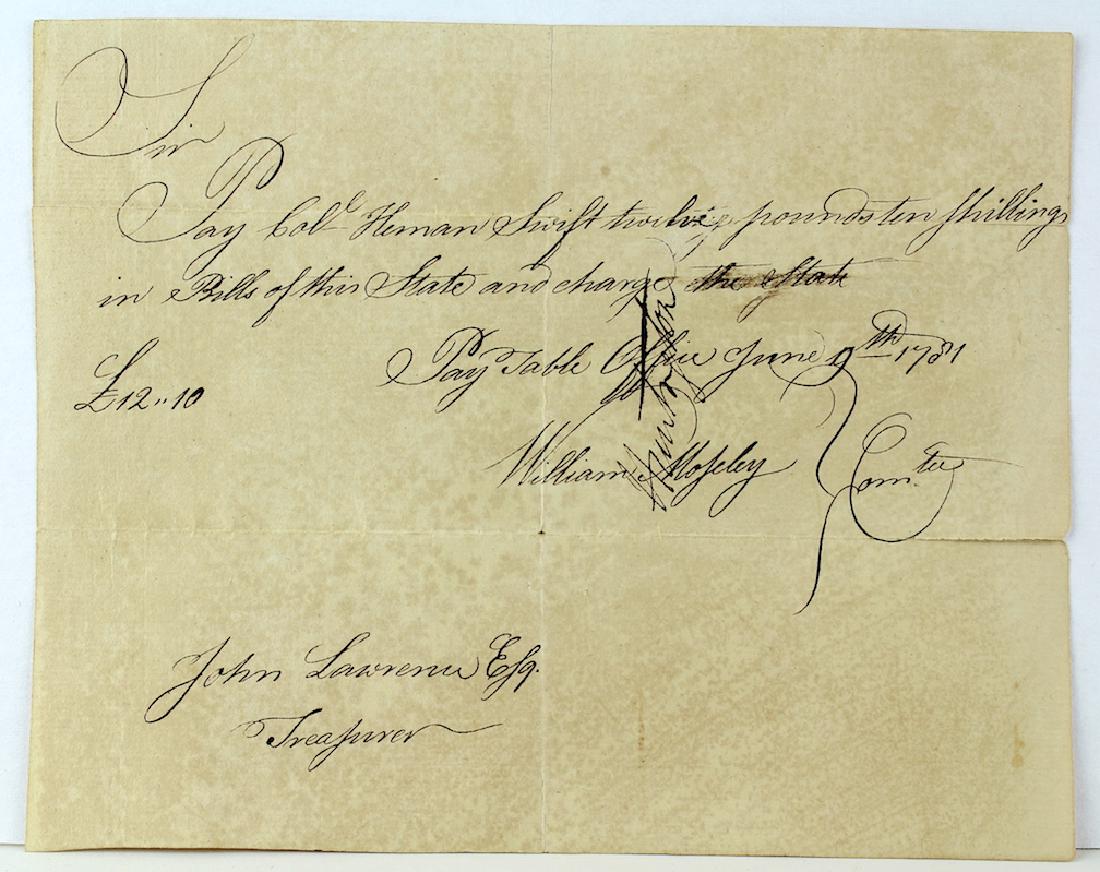 Sir
Pay Col.ˡ Heman Swift twelve pounds ten shillings
in Bills of this State and charge the State
£12„10 Pay Table Office June 9th 1781
William Moseley Com.tee
John Lawrence Esq.
Treasurer